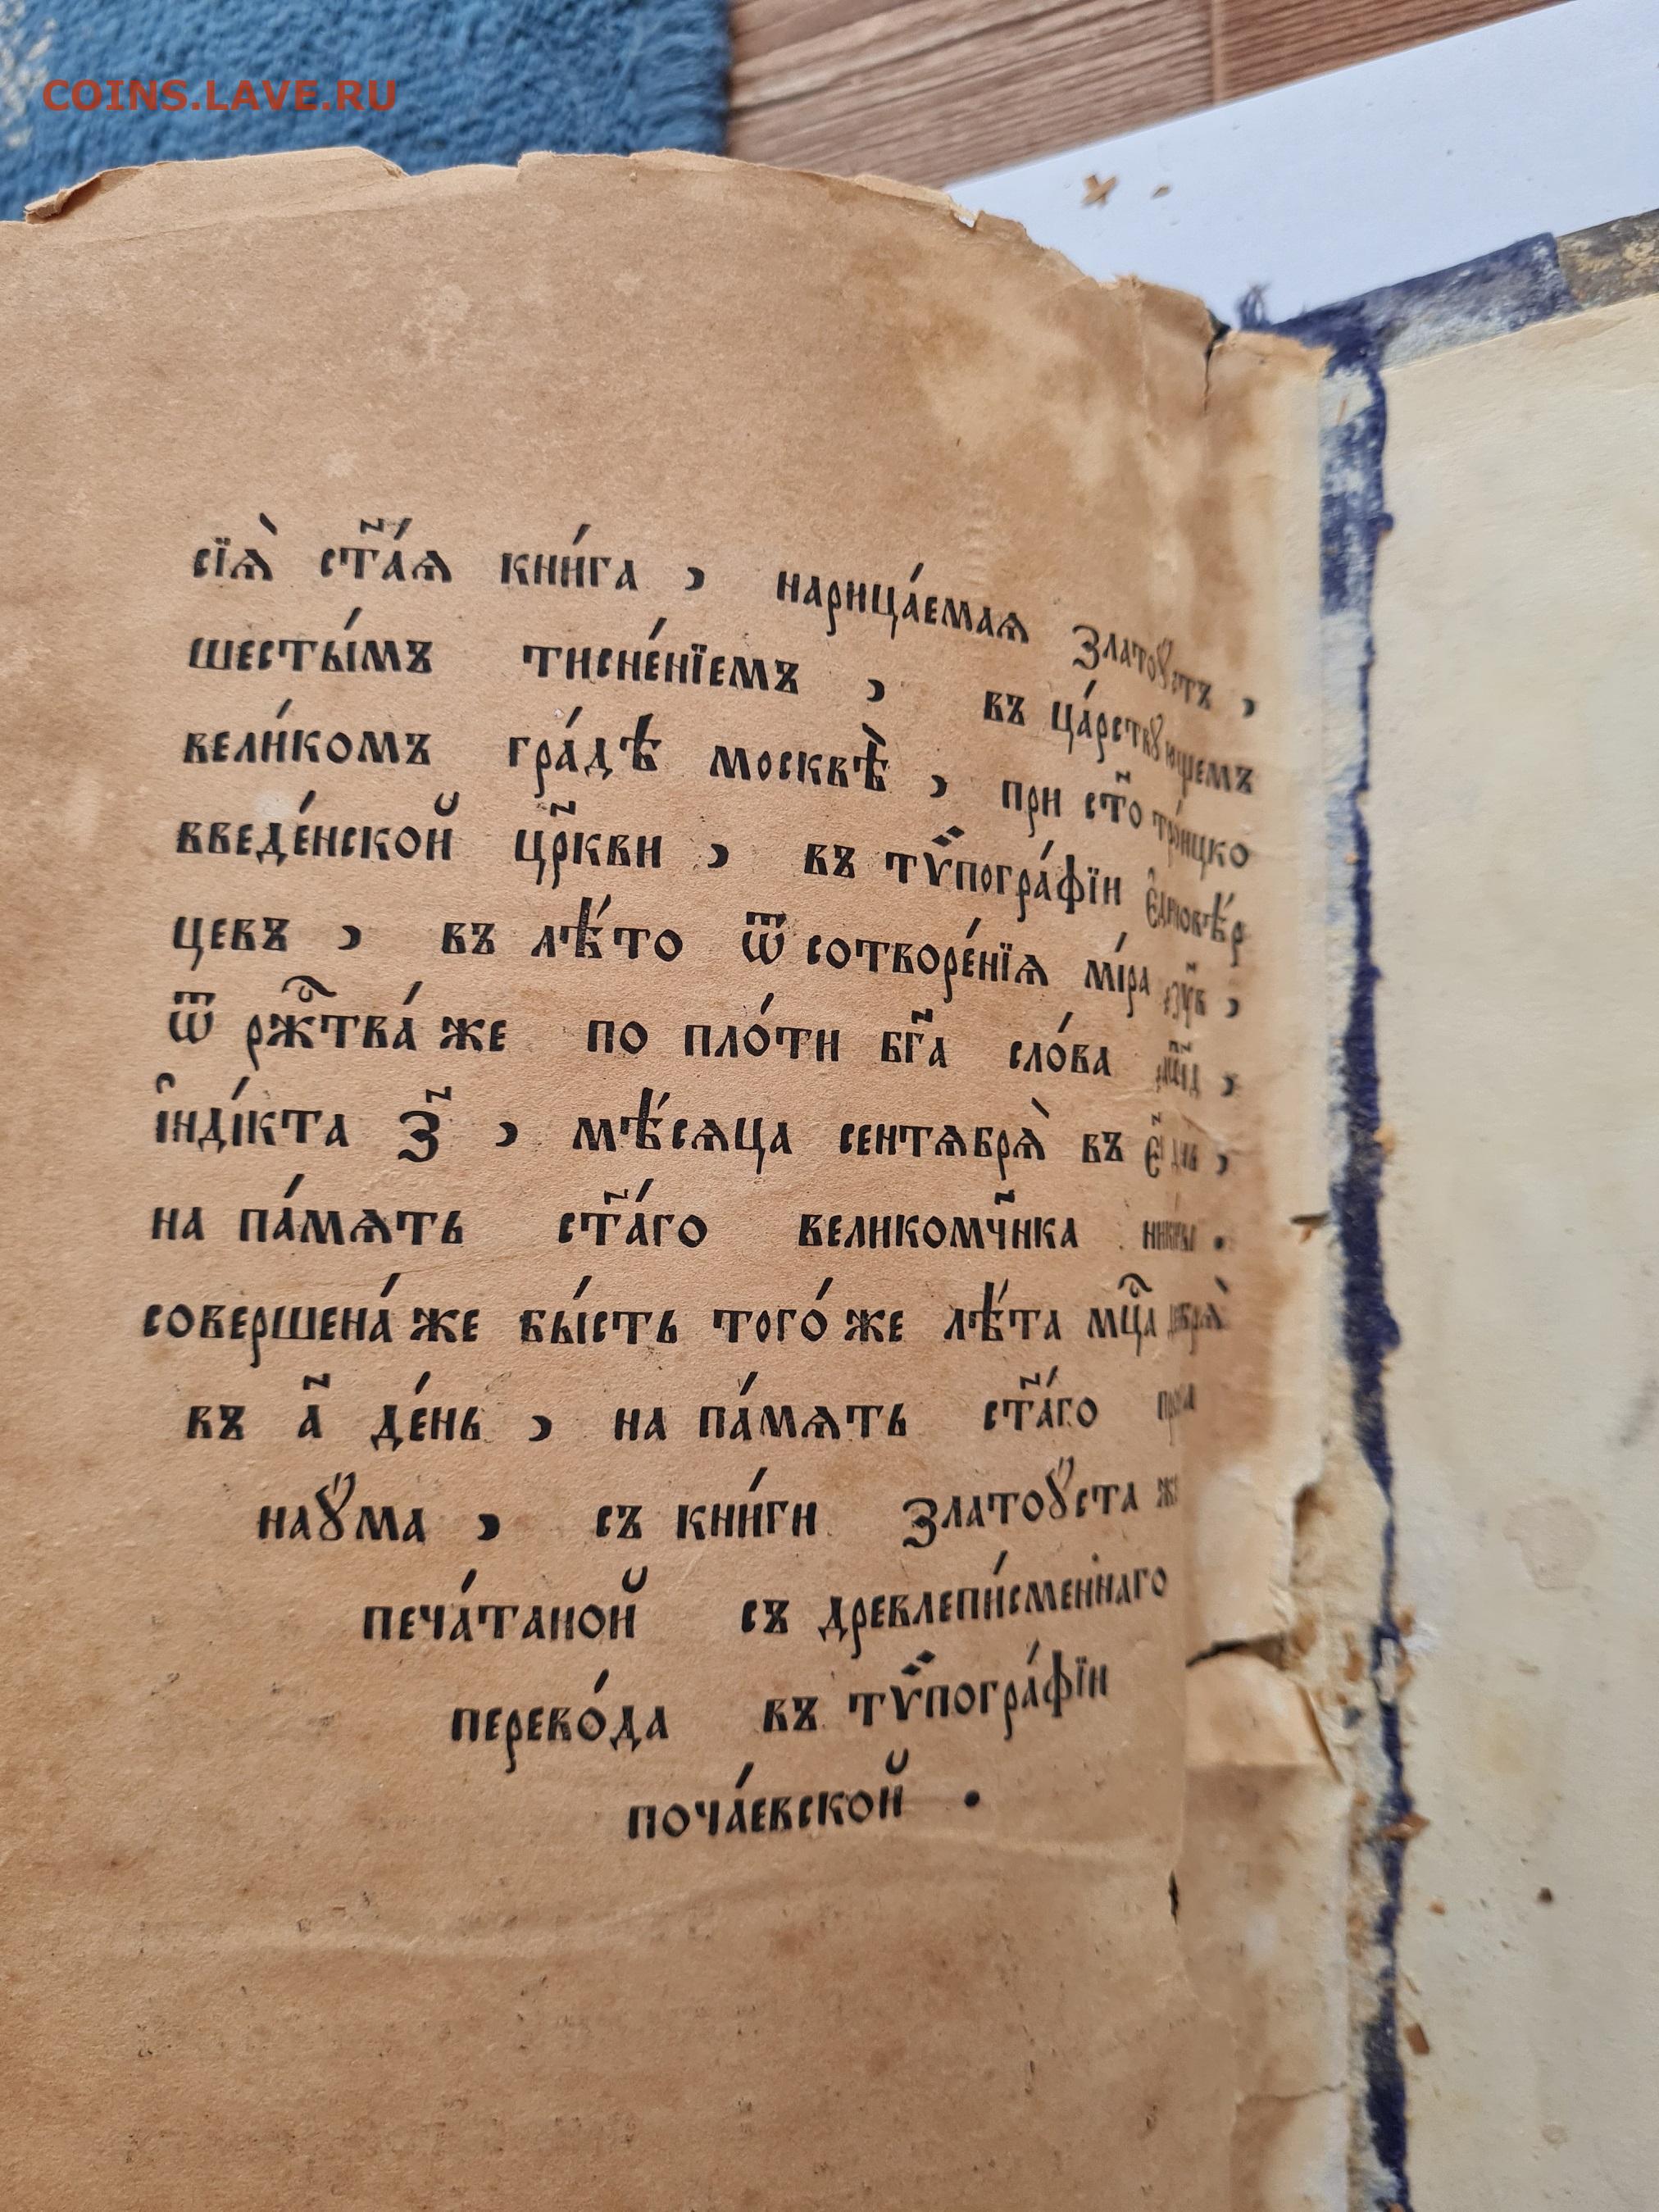 COINS.LAVE.RU
сїѧ̀ ст҃а́ѧ кни́га , нарица́емаѧ Златоꙋ́стъ ,
шесты́мъ тисне́нїемъ , въ ца́рствꙋющемъ
вели́комъ гра́дѣ москвѣ̀ , при ст҃о тро́ицко
введе́нской цр҃кви , въ тѷпогра́фїи є҆диновѣ́р
цевъ , въ лѣ́то ѿ сотворе́нїѧ мі́ра
ѿ рж҇тва́ же по пло́ти бг҃а сло́ва
і҆нді́кта З҃ , мѣ́сѧца сентѧбрѧ̀ въ є҃і дн҃ь ,
на па́мѧть ст҃а́го великомч҃нка ники́ты .
соверше́на́ же бы́сть того́ же лѣ́та мцⷭ҇а декабрѧ̀
въ а҃ де́нь , на па́мѧть ст҃а́го
наꙋ́ма , съ кни́ги Златоꙋ́ста же
печа́таной съ древлепи́сменнаго
перево́да въ тѷпогра́фїи
поча́евской .